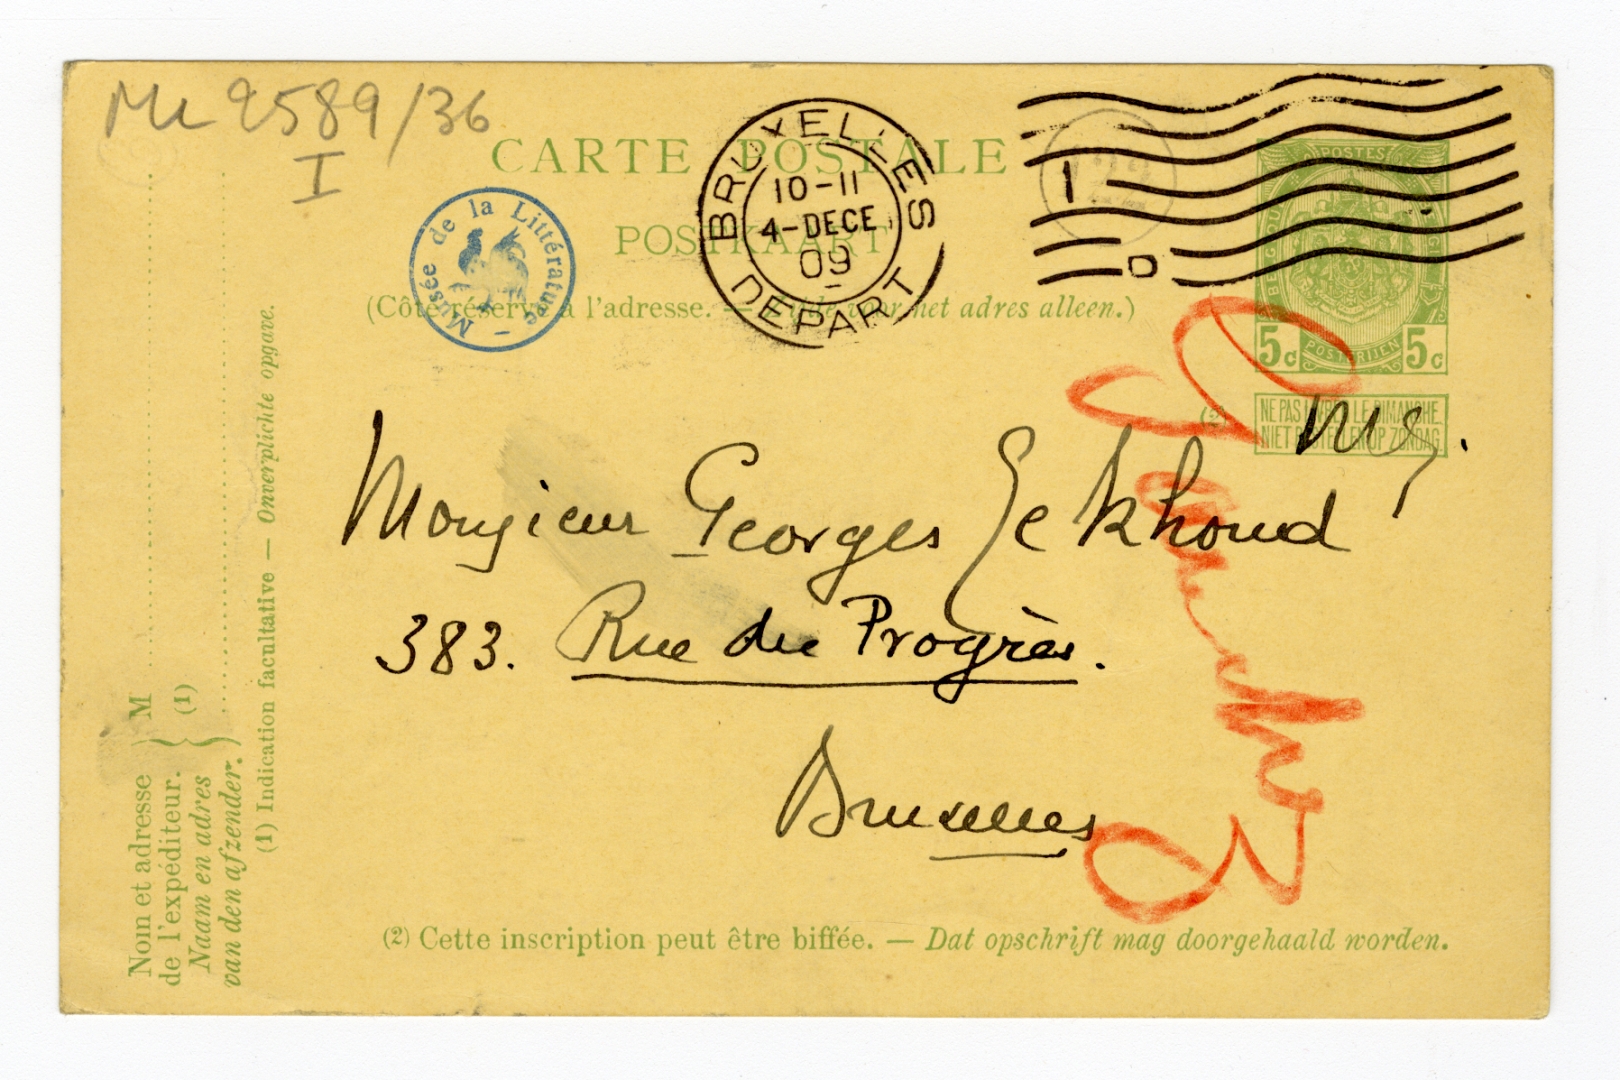 ML 9589/36
I
CARTE POSTALE
POSTKAART
(Côté réservé à l'adresse. — Zijde voor het adres alleen.)
Musée de la Littérature -
BRUXELLES
10-11
4-DECE
09
DEPART
1
POSTES
POSTERIJEN
5c 5c
(2)
NE PAS LIVRER LE DIMANCHE.
NIET BESTELLEN OP ZONDAG.
Monsieur Georges Eekhoud
383. Rue du Progrès.
Bruxelles
(2) Cette inscription peut être biffée. — Dat opschrift mag doorgehaald worden.
Nom et adresse
de l'expéditeur.
Naam en adres
van den afzender.
M
(1)
(1) Indication facultative — Onverplichte opgave.